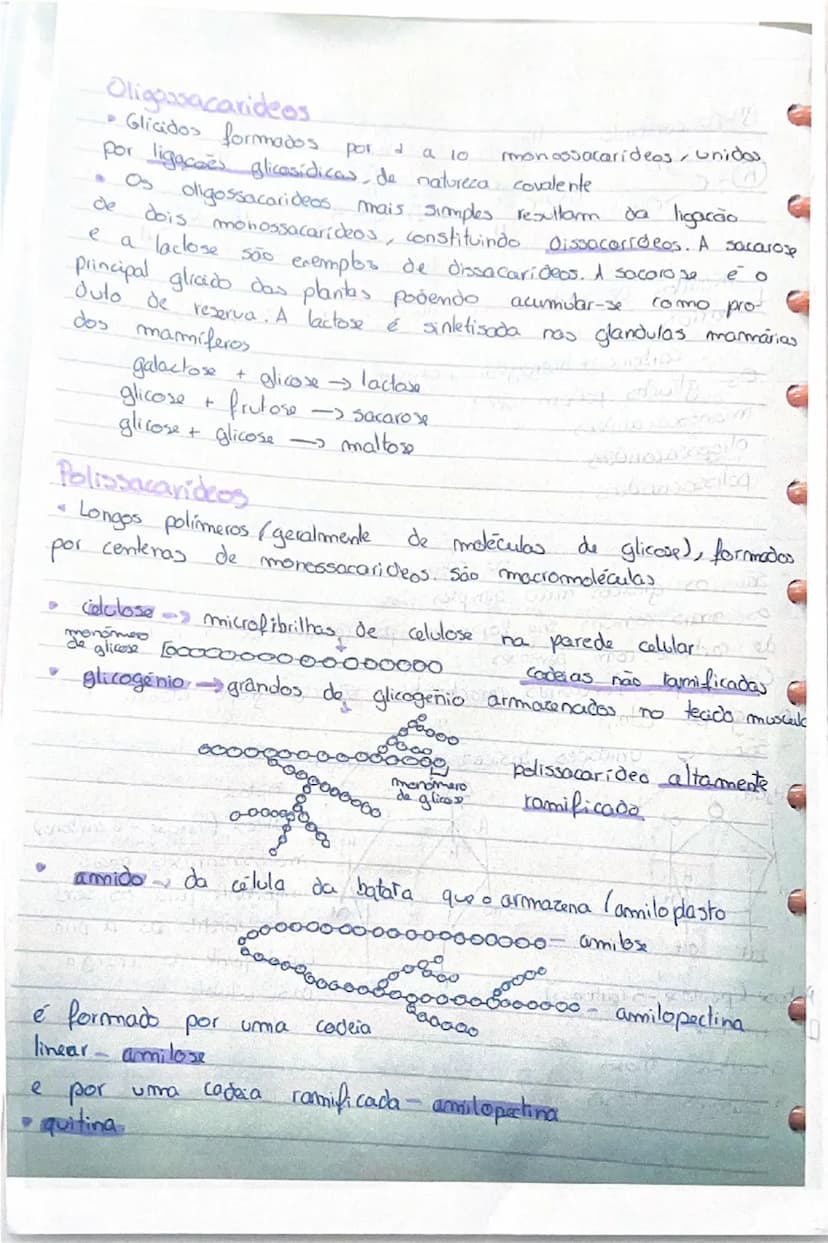 Oligossacarideos
• Glicidos formados por 2 a 10 monossacarídeos, unidos
por ligações glicosídicas, de natureza covalente
• Os oligossacarideos mais simples resultam da ligação
de dois monossacarídeos, constituindo Dissacarídeos. A sacarose
e a lactose são exemplos de dissacarídeos. A sacarose é o
principal glicido das plantas podendo acumular-se como pro-
duto de reserva. A lactose é sintetisada nas glandulas mamárias
dos mamíferos
galactose + glicose → lactose
glicose + frutose → sacarose
glicose + glicose → maltose
Polissacarídeos
• Longos polímeros (geralmente de moléculas de glicose), formados
por centenas de monossacarideos. são macromoléculas
• celulose → microfibrilhas de celulose na parede celular
monómero
de glicose
cadeias não ramificadas
• glicogénio → grândos de glicogénio armazenados no tecido muscul
monómero
de glicose
polissacarídeo altamente
ramificado
• amido → da célula da batata que o armazena (amiloplasto
- amilose
- amilopectina
é formado por uma cadeia
linear - amilose
e por uma cadeia ramificada - amilopectina
• quitina